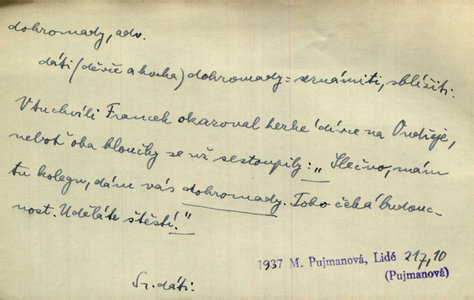 dohromady, adv.
dáti (děvče a hocha) dohromady = seznámiti, sblížiti:
V tu chvíli Francek okazoval hezké dívce na Ondřeje,
neboť oba hloučky se už sestoupily: „Slečno, mám
tu kolegu, dám vás dohromady. Toho čeká budouc-
nost. Uděláte štěstí."
1937 M. Pujmanová, Lidé 217, 10
(Pujmanová)
Sr. dáti.